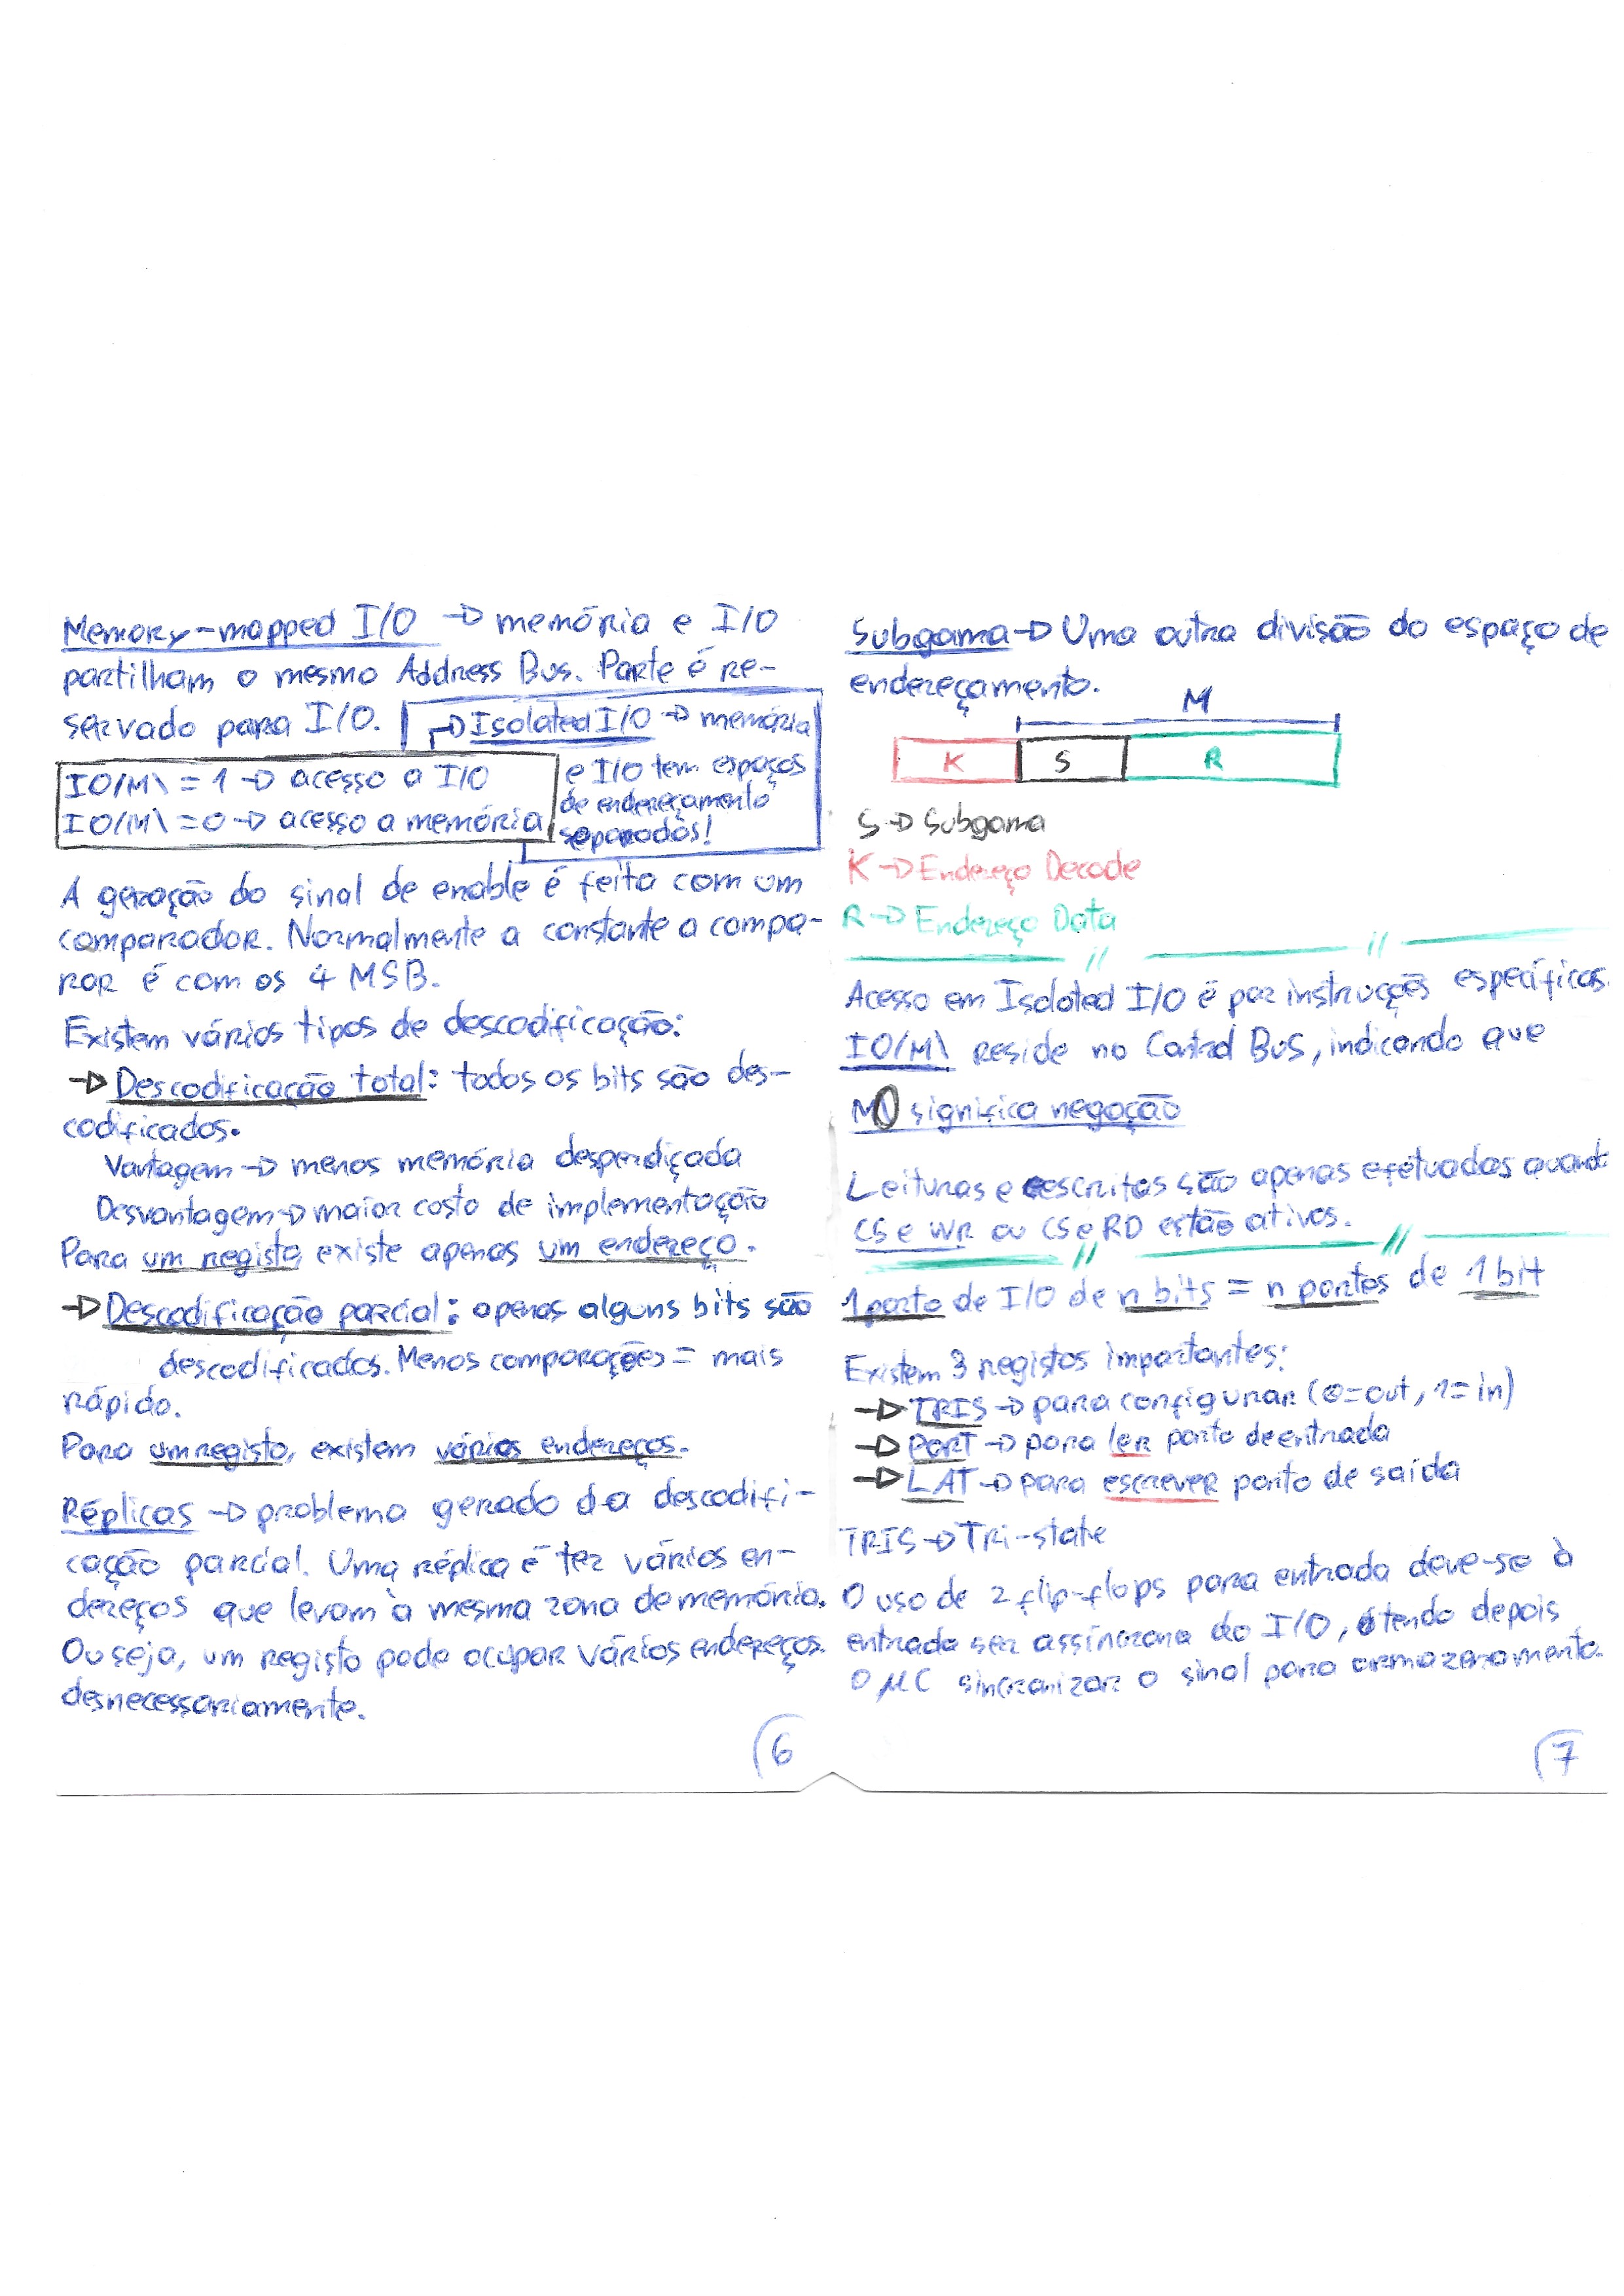 Memory-mapped I/O → memória e I/O
partilham o mesmo Address Bus. Parte é re-
servado para I/O.
→ Isolated I/O → memória
e I/O tem espaços
de endereçamento
separados!
IO/M\ = 1 → acesso a I/O
IO/M\ = 0 → acesso a memória
A geração do sinal de enable é feita com um
comparador. Normalmente a constante a compa-
rar é com os 4 MSB.
Existem vários tipos de descodificação:
→ Descodificação total: todos os bits são des-
codificados.
Vantagem → menos memória desperdiçada
Desvantagem → maior custo de implementação
Para um registo existe apenas um endereço.
→ Descodificação parcial: apenas alguns bits são
descodificados. Menos comparações = mais
rápido.
Para um registo, existem vários endereços.
Réplicas → problema gerado da descodifi-
cação parcial. Uma réplica é ter vários en-
dereços que levam à mesma zona de memória.
Ou seja, um registo pode ocupar vários endereços
desnecessariamente.
6
Subgama → Uma outra divisão do espaço de
endereçamento.
M
K S R
S → Subgama
K → Endereço Decode
R → Endereço Data
Acesso em Isolated I/O é por instrucções específicas.
IO/M\ reside no Control Bus, indicando que
M\ significa negação
Leituras e escritas são apenas efetuadas quando
CS e WR ou CS e RD estão ativos.
1 porto de I/O de n bits = n portos de 1 bit
Existem 3 registos importantes:
→ TRIS → para configurar (0=out, 1=in)
→ PORT → para ler porto de entrada
→ LAT → para escrever porto de saída
TRIS → Tri-state
O uso de 2 flip-flops para entrada deve-se à
entrada ser assíncrona do I/O, tendo depois
o µC sincronizar o sinal para armazenamento.
7